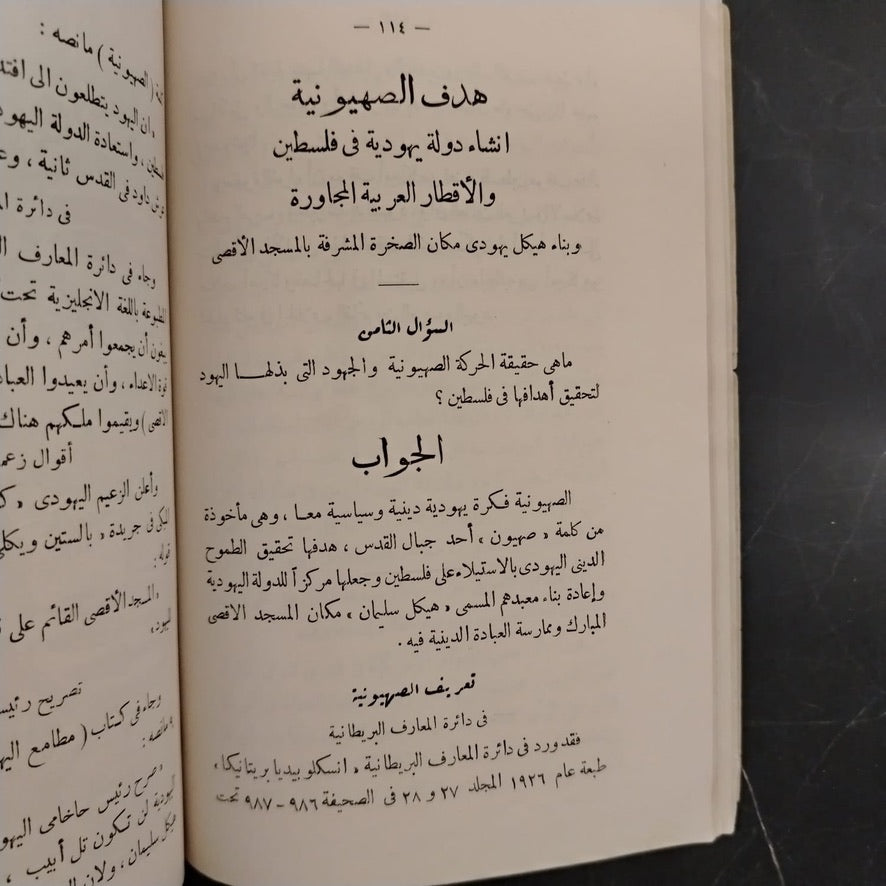 — ١١٤ —
هدف الصهيونية
انشاء دولة يهودية فى فلسطين
والأقطار العربية المجاورة
وبناء هيكل يهودى مكان الصخرة المشرفة بالمسجد الأقصى
السؤال الثامن
ماهى حقيقة الحركة الصهيونية والجهود التى بذلهـــا اليهود
لتحقيق أهدافها فى فلسطين ؟
الجواب
الصهيونية فكرة يهودية دينية وسياسية معـا ، وهى مأخوذة
من كلمة « صهيون » أحد جبال القدس ، هدفها تحقيق الطموح
الدينى اليهودى بالاستيلاء على فلسطين وجعلها مركزآ للدولة اليهودية
وإعادة بناء معبدهم المسمى « هيكل سليمان » مكان المسجد الاقصى
المبارك وممارسة العبادة الدينية فيه .
تعريف الصهيونية
فى دائرة المعارف البريطانية
فقد ورد فى دائرة المعارف البريطانية « انسكلوبيديا بريتانيكا »
طبعة عام ١٩٢٦ المجلد ٢٧ و ٢٨ فى الصحيفة ٩٨٦ - ٩٨٧ تحت
( الصهيونية ) مانصه :
« ان اليهود يتطلعون الى
، واستعادة الدولة
داود فى القدس ثانية ،
فى دائرة
وجاء فى دائرة المعارف
المطبوعة باللغة الانجليزية تحت
أن يجمعوا أمرهم ، وأن
الاعداء ، وأن يعيدوا
ويقيموا ملكهم هناك
أقوال
وأعلن الزعيم اليهودى «
فى جريدة « بالستين
قوله :
« المسجد الأقصى القائم على
اليهود »
تصريح
وجاء فى كتاب ( مطامع
مانصه :
« صرح رئيس حاخامى
اليهودية لن تكون تل أبيب ،
هيكل سليمان ، ولان